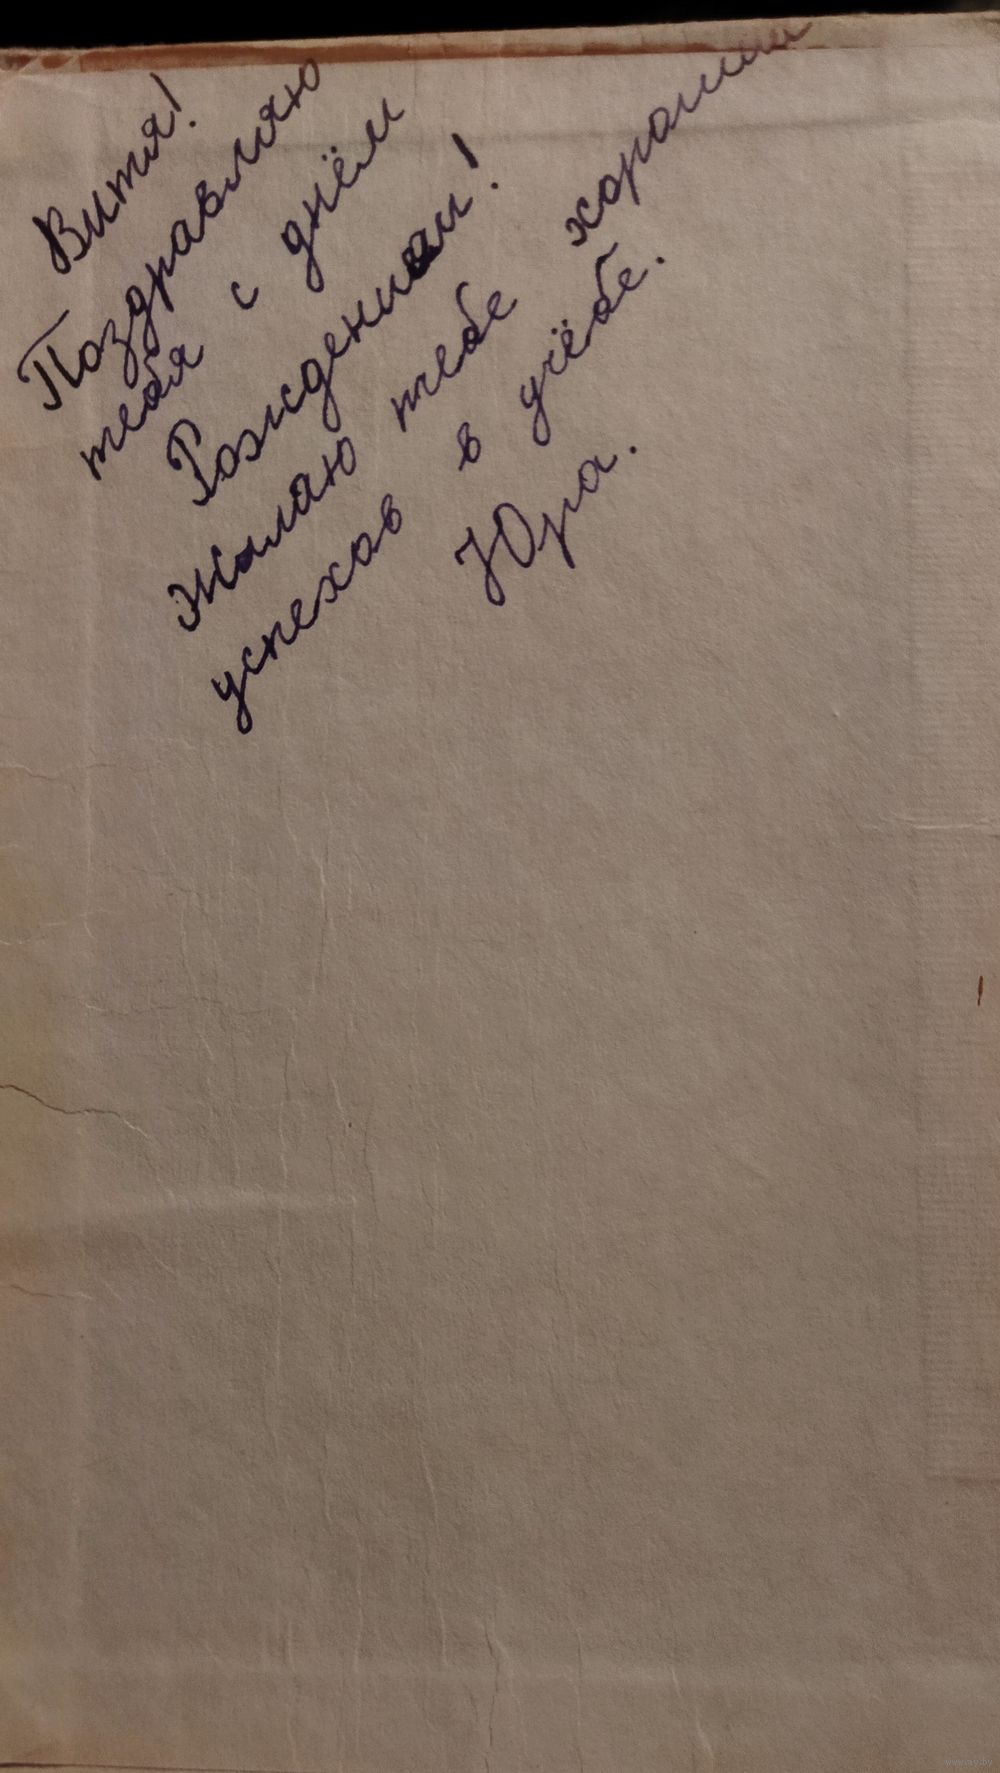 Витя!
Поздравляю
тебя с днём
Рожденияем!
Желаю тебе хороших
успехов в учёбе.
Юра.
www.ay.by